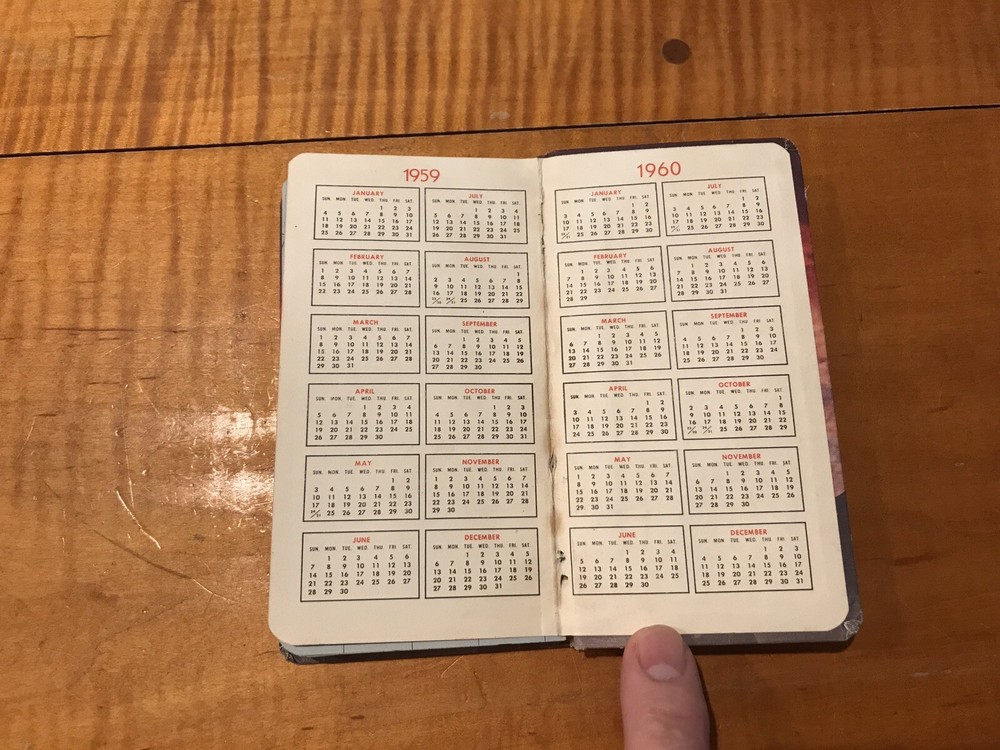 1959
JANUARY
SUN. MON. TUE. WED. THU. FRI. SAT.
1 2 3
4 5 6 7 8 9 10
11 12 13 14 15 16 17
18 19 20 21 22 23 24
25 26 27 28 29 30 31
FEBRUARY
SUN. MON. TUE. WED. THU. FRI. SAT.
1 2 3 4 5 6 7
8 9 10 11 12 13 14
15 16 17 18 19 20 21
22 23 24 25 26 27 28
MARCH
SUN. MON. TUE. WED. THU. FRI. SAT.
1 2 3 4 5 6 7
8 9 10 11 12 13 14
15 16 17 18 19 20 21
22 23 24 25 26 27 28
29 30 31
APRIL
SUN. MON. TUE. WED. THU. FRI. SAT.
1 2 3 4
5 6 7 8 9 10 11
12 13 14 15 16 17 18
19 20 21 22 23 24 25
26 27 28 29 30
MAY
SUN. MON. TUE. WED. THU. FRI. SAT.
1 2
3 4 5 6 7 8 9
10 11 12 13 14 15 16
17 18 19 20 21 22 23
24/31 25 26 27 28 29 30
JUNE
SUN. MON. TUE. WED. THU. FRI. SAT.
1 2 3 4 5 6
7 8 9 10 11 12 13
14 15 16 17 18 19 20
21 22 23 24 25 26 27
28 29 30
JULY
SUN. MON. TUE. WED. THU. FRI. SAT.
1 2 3 4
5 6 7 8 9 10 11
12 13 14 15 16 17 18
19 20 21 22 23 24 25
26 27 28 29 30 31
AUGUST
SUN. MON. TUE. WED. THU. FRI. SAT.
1
2 3 4 5 6 7 8
9 10 11 12 13 14 15
16 17 18 19 20 21 22
23/30 24/31 25 26 27 28 29
SEPTEMBER
SUN. MON. TUE. WED. THU. FRI. SAT.
1 2 3 4 5
6 7 8 9 10 11 12
13 14 15 16 17 18 19
20 21 22 23 24 25 26
27 28 29 30
OCTOBER
SUN. MON. TUE. WED. THU. FRI. SAT.
1 2 3
4 5 6 7 8 9 10
11 12 13 14 15 16 17
18 19 20 21 22 23 24
25 26 27 28 29 30 31
NOVEMBER
SUN. MON. TUE. WED. THU. FRI. SAT.
1 2 3 4 5 6 7
8 9 10 11 12 13 14
15 16 17 18 19 20 21
22 23 24 25 26 27 28
29 30
DECEMBER
SUN. MON. TUE. WED. THU. FRI. SAT.
1 2 3 4 5
6 7 8 9 10 11 12
13 14 15 16 17 18 19
20 21 22 23 24 25 26
27 28 29 30 31
1960
JANUARY
SUN. MON. TUE. WED. THU. FRI. SAT.
1 2
3 4 5 6 7 8 9
10 11 12 13 14 15 16
17 18 19 20 21 22 23
24/31 25 26 27 28 29 30
FEBRUARY
SUN. MON. TUE. WED. THU. FRI. SAT.
1 2 3 4 5 6
7 8 9 10 11 12 13
14 15 16 17 18 19 20
21 22 23 24 25 26 27
28 29
MARCH
SUN. MON. TUE. WED. THU. FRI. SAT.
1 2 3 4 5
6 7 8 9 10 11 12
13 14 15 16 17 18 19
20 21 22 23 24 25 26
27 28 29 30 31
APRIL
SUN. MON. TUE. WED. THU. FRI. SAT.
1 2
3 4 5 6 7 8 9
10 11 12 13 14 15 16
17 18 19 20 21 22 23
24 25 26 27 28 29 30
MAY
SUN. MON. TUE. WED. THU. FRI. SAT.
1 2 3 4 5 6 7
8 9 10 11 12 13 14
15 16 17 18 19 20 21
22 23 24 25 26 27 28
29 30 31
JUNE
SUN. MON. TUE. WED. THU. FRI. SAT.
1 2 3 4
5 6 7 8 9 10 11
12 13 14 15 16 17 18
19 20 21 22 23 24 25
26 27 28 29 30
JULY
SUN. MON. TUE. WED. THU. FRI. SAT.
1 2
3 4 5 6 7 8 9
10 11 12 13 14 15 16
17 18 19 20 21 22 23
24/31 25 26 27 28 29 30
AUGUST
SUN. MON. TUE. WED. THU. FRI. SAT.
1 2 3 4 5 6
7 8 9 10 11 12 13
14 15 16 17 18 19 20
21 22 23 24 25 26 27
28 29 30 31
SEPTEMBER
SUN. MON. TUE. WED. THU. FRI. SAT.
1 2 3
4 5 6 7 8 9 10
11 12 13 14 15 16 17
18 19 20 21 22 23 24
25 26 27 28 29 30
OCTOBER
SUN. MON. TUE. WED. THU. FRI. SAT.
1
2 3 4 5 6 7 8
9 10 11 12 13 14 15
16 17 18 19 20 21 22
23/30 24/31 25 26 27 28 29
NOVEMBER
SUN. MON. TUE. WED. THU. FRI. SAT.
1 2 3 4 5
6 7 8 9 10 11 12
13 14 15 16 17 18 19
20 21 22 23 24 25 26
27 28 29 30
DECEMBER
SUN. MON. TUE. WED. THU. FRI. SAT.
1 2 3
4 5 6 7 8 9 10
11 12 13 14 15 16 17
18 19 20 21 22 23 24
25 26 27 28 29 30 31